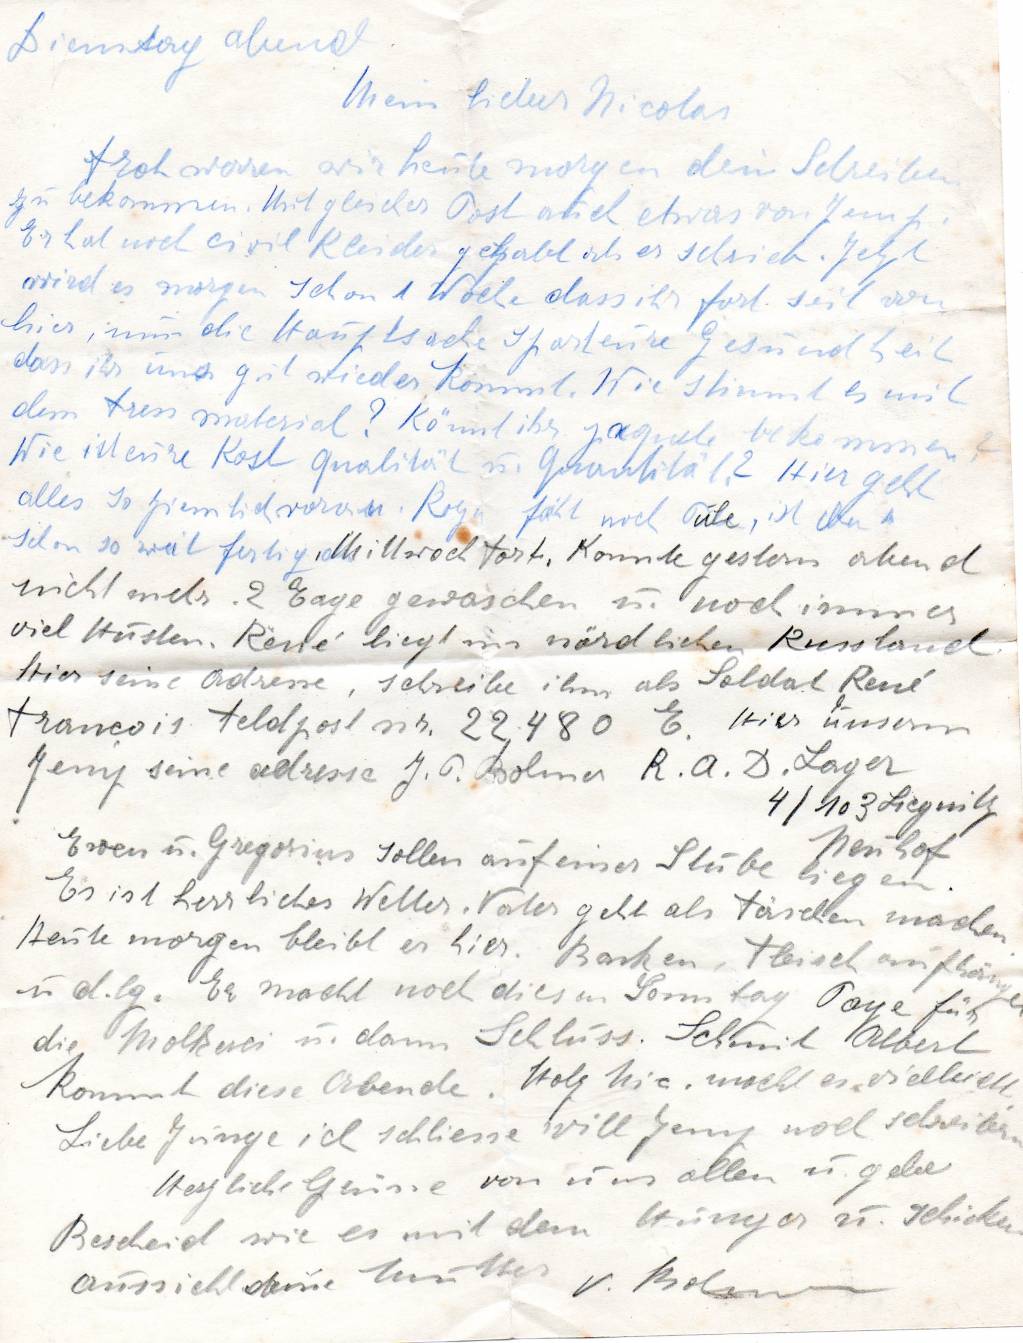 Dienstag abend
Mein lieber Nicolas
Froh waren wir heute morgen dein Schreiben
zu bekommen. Mit gleicher Post auch etwas von Jemp.
Er hat noch civil Kleider gehabt als er schrieb. Jetzt
wird es morgen schon 1 Woche dass ihr fort seit von
hier, nun die Hauptsache spart eure Gesundheit
dass ihr uns gut wieder kommt. Wie stimmt es mit
dem Fress material? Könnt ihr paquete bekommen?
Wie ist eure Kost Qualität u. Quantität? Hier geht
alles so ziemlich voran. fährt noch Tüle, ist
schon so weit fertig. Mittwoch fort. Konnte gestern abend
nicht mehr. 2 Tage gewaschen u. noch immer
viel Husten. René liegt im nördlichen Russland.
Hier seine Adresse, schreibe ihm als Soldat René
François Feldpost nr. 22480 E. Hier unserm
Jemp seine adresse J. P. Bohmer R.A.D. Lager
4/103 Liegnitz
Neuhof
Ewen u. Gregorius sollen auf einer Stube liegen.
Es ist herrliches Wetter. Vater geht als Täschen machen
Heute morgen bleibt er hier. Backen, Fleisch aufhängen
u d.lg. Er macht noch diesen Sonntag Tage für
die Molkerei u. dann Schluss. Schmit Albert
kommt diese Abende. Holz Nic. macht es vielleicht
Liebe Junge ich schliesse will Jemp noch schreiben
Herzliche Grüsse von uns allen u. gebe
Bescheid wie es mit dem Hunger u. schicken
aussieht deine Mutter V. Bohmer